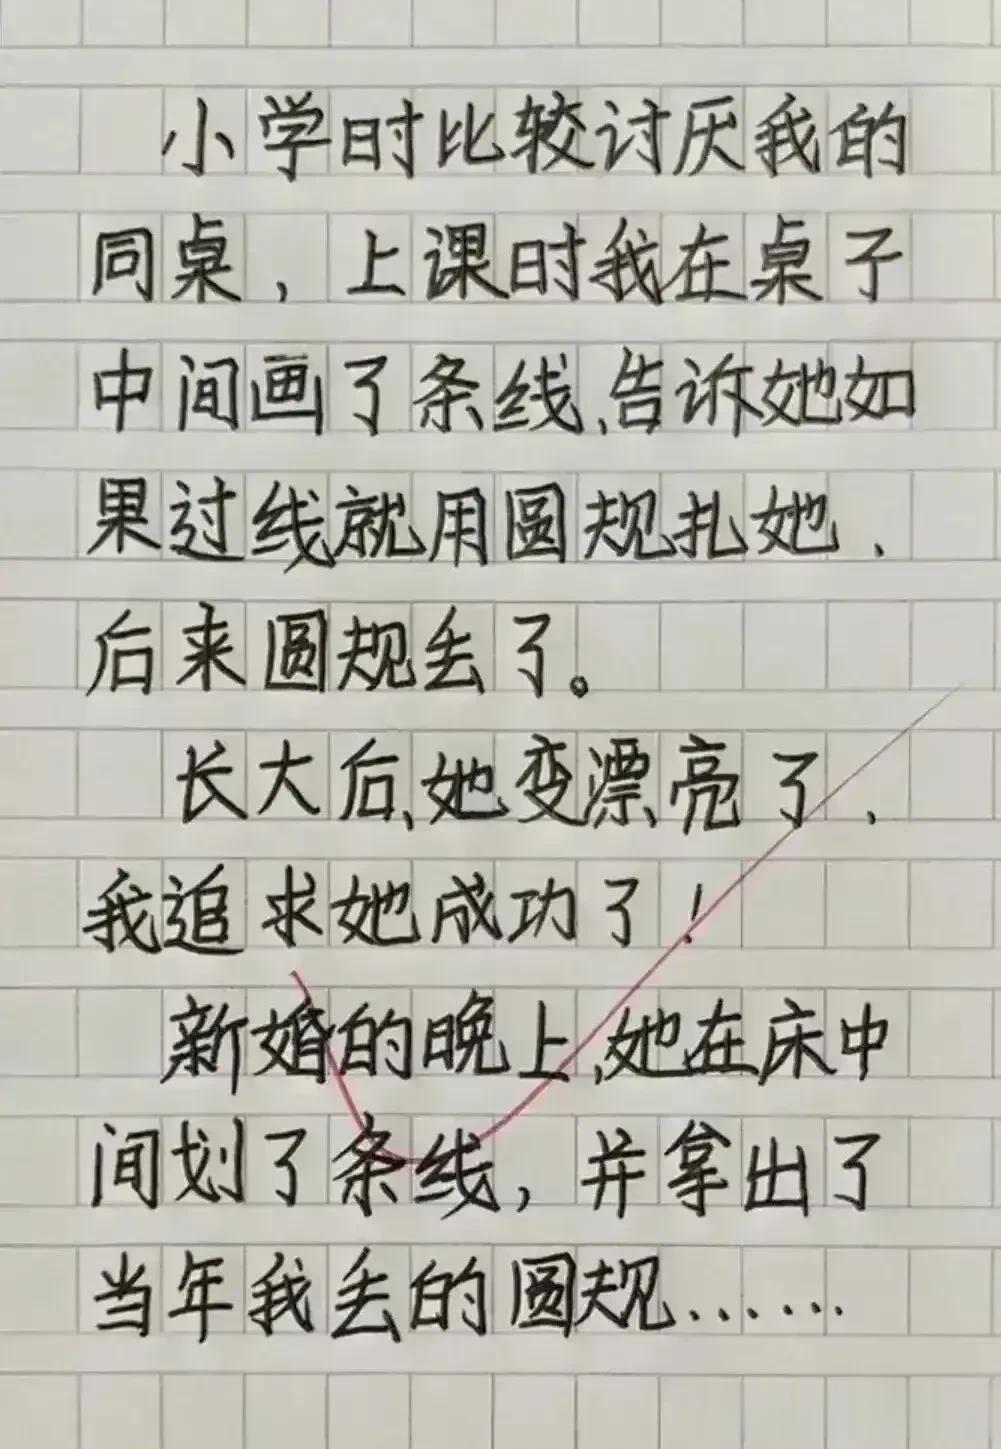 小学时比较讨厌我的
同桌，上课时我在桌子
中间画了条线、告诉她如
果过线就用圆规扎她、
后来圆规丢了。
长大后、她变漂亮了、
我追求她成功了！
新婚的晚上、她在床中
间划了条线，并拿出了
当年我丢的圆规……